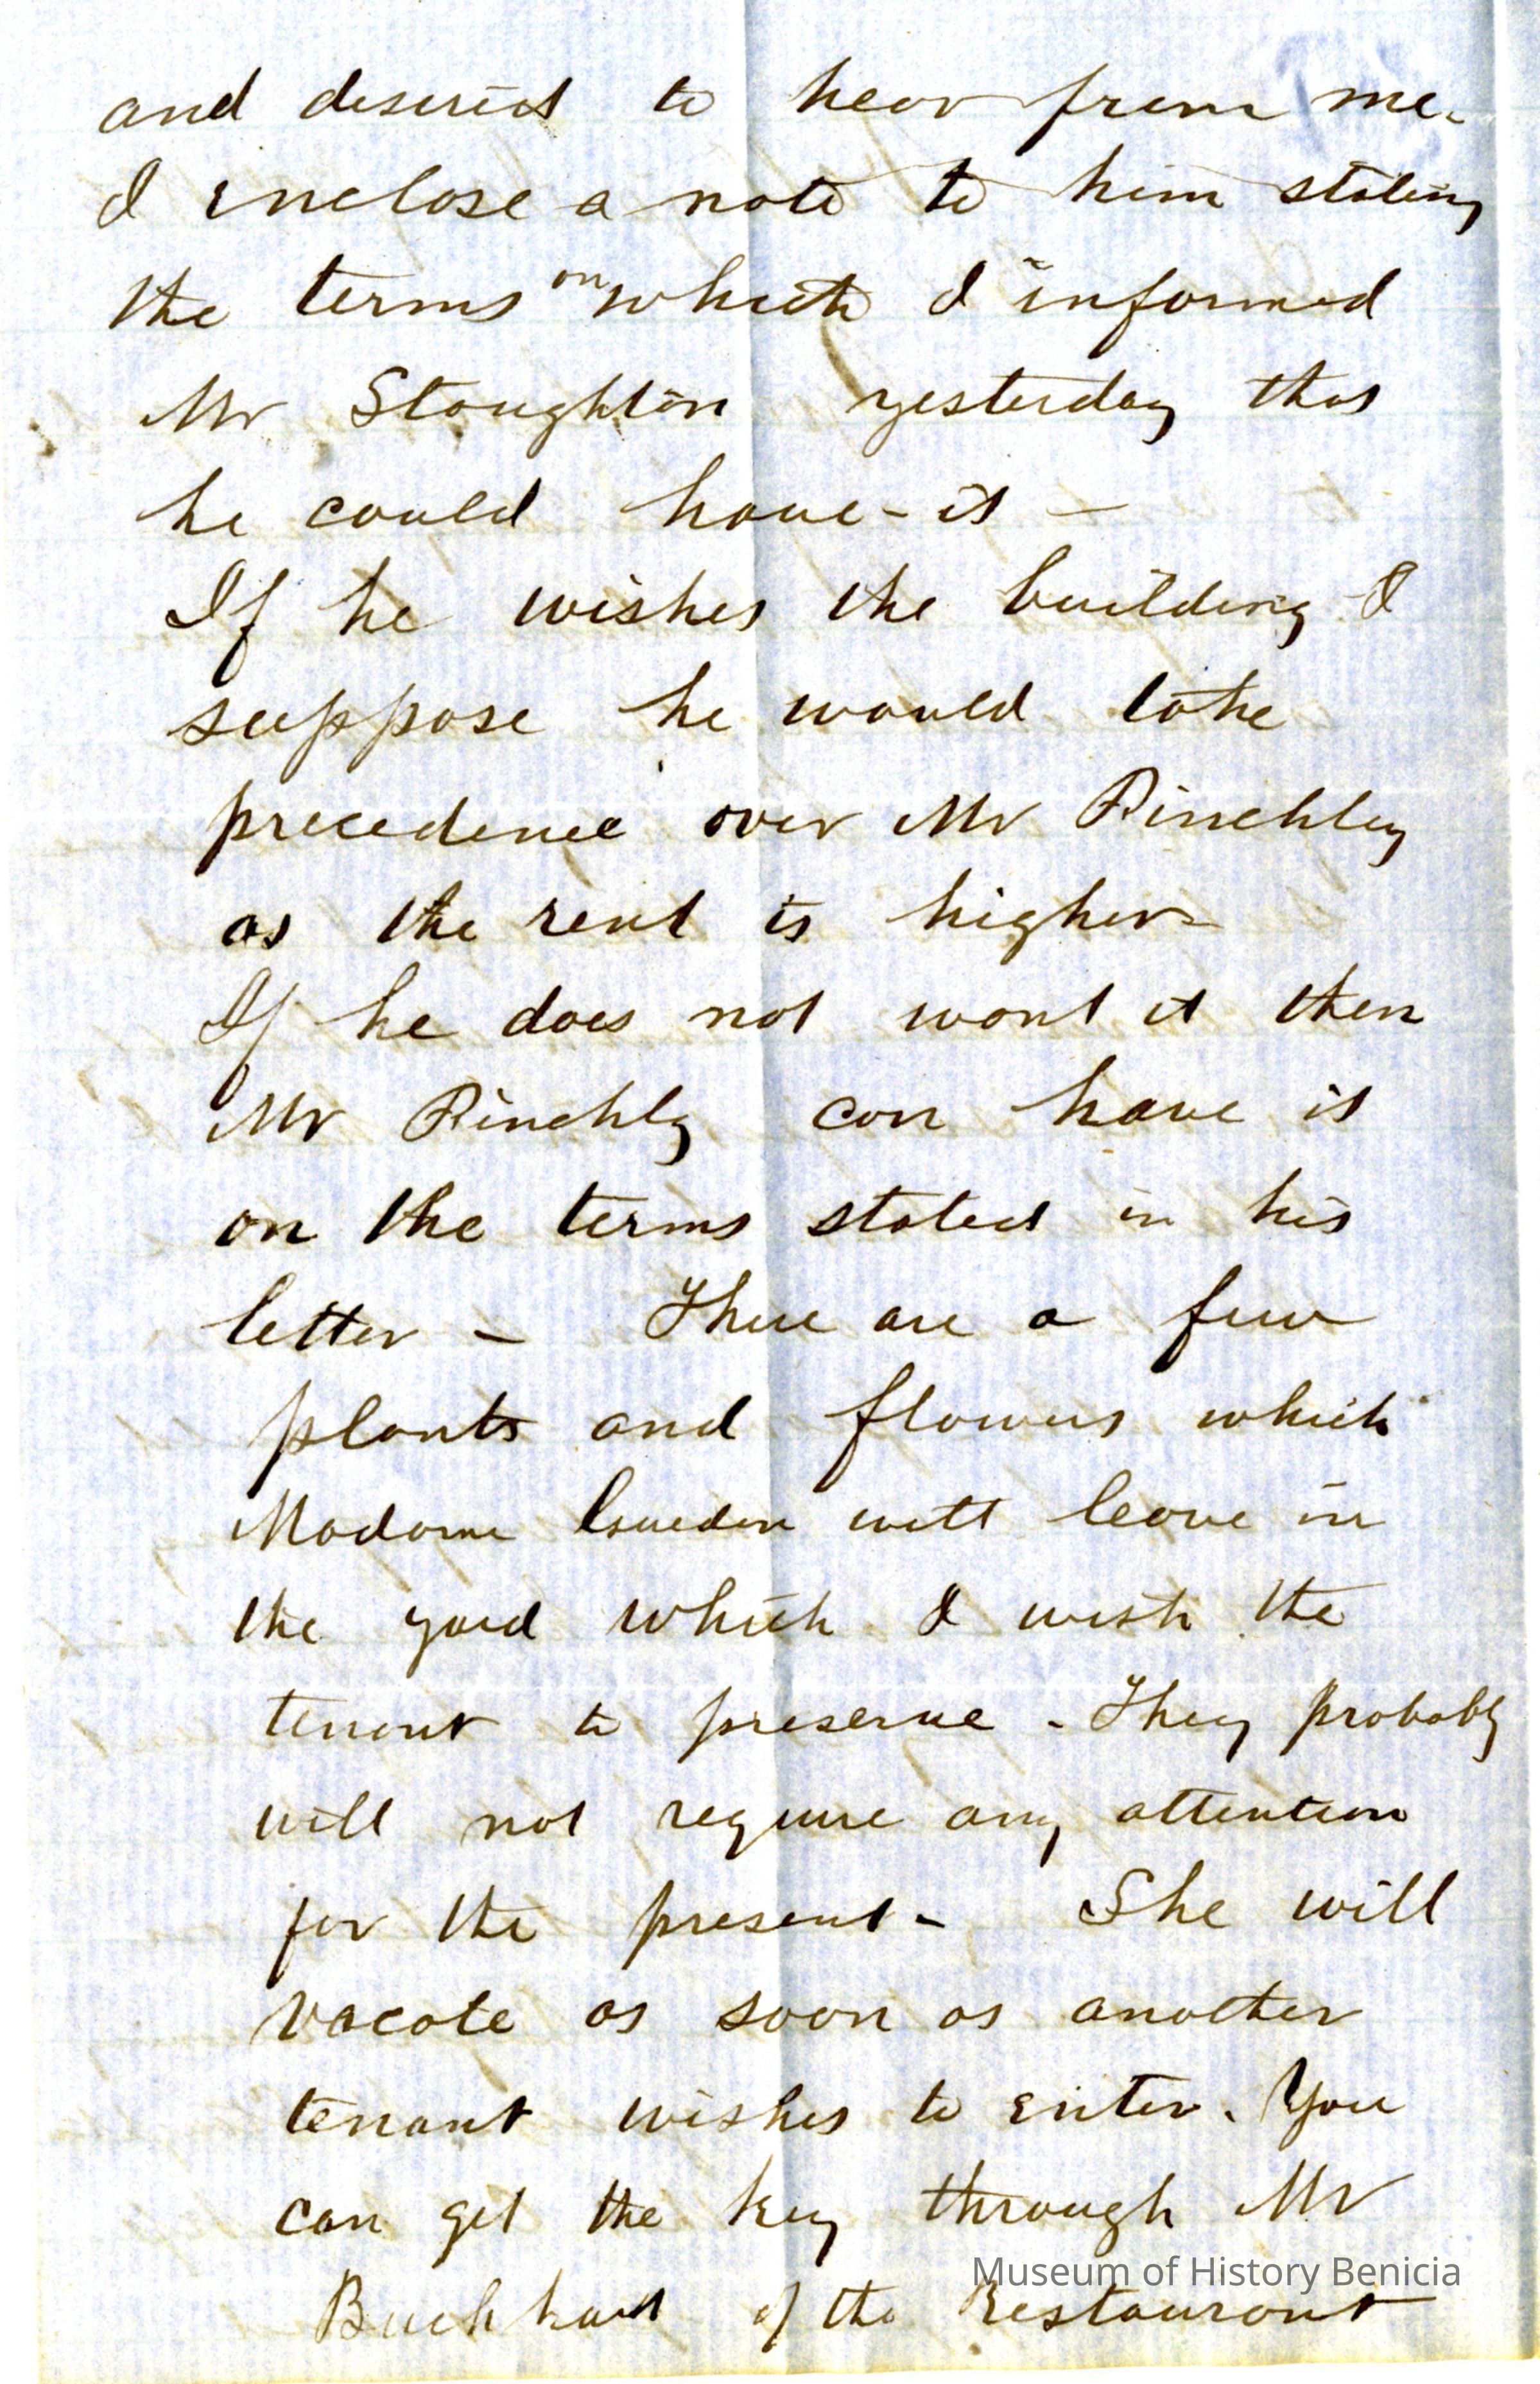 and desired to hear from me.
I inclose a note to him stating
the terms on which I informed
Mr Stoughton yesterday that
he could have - it -
If he wishes the building I
suppose he would take
precedence over Mr Rinchley
as the rent is higher
If he does not want it then
Mr Rinchly can have it
on the terms stated in his
letter - There are a few
plants and flowers which
Madame will leave in
the yard which I wish the
tenant to preserve - They probably
will not require any attention
for the present - She will
vacate as soon as another
tenant wishes to enter. You
can get the key through Mr
of the Restaurant
Museum of History Benicia